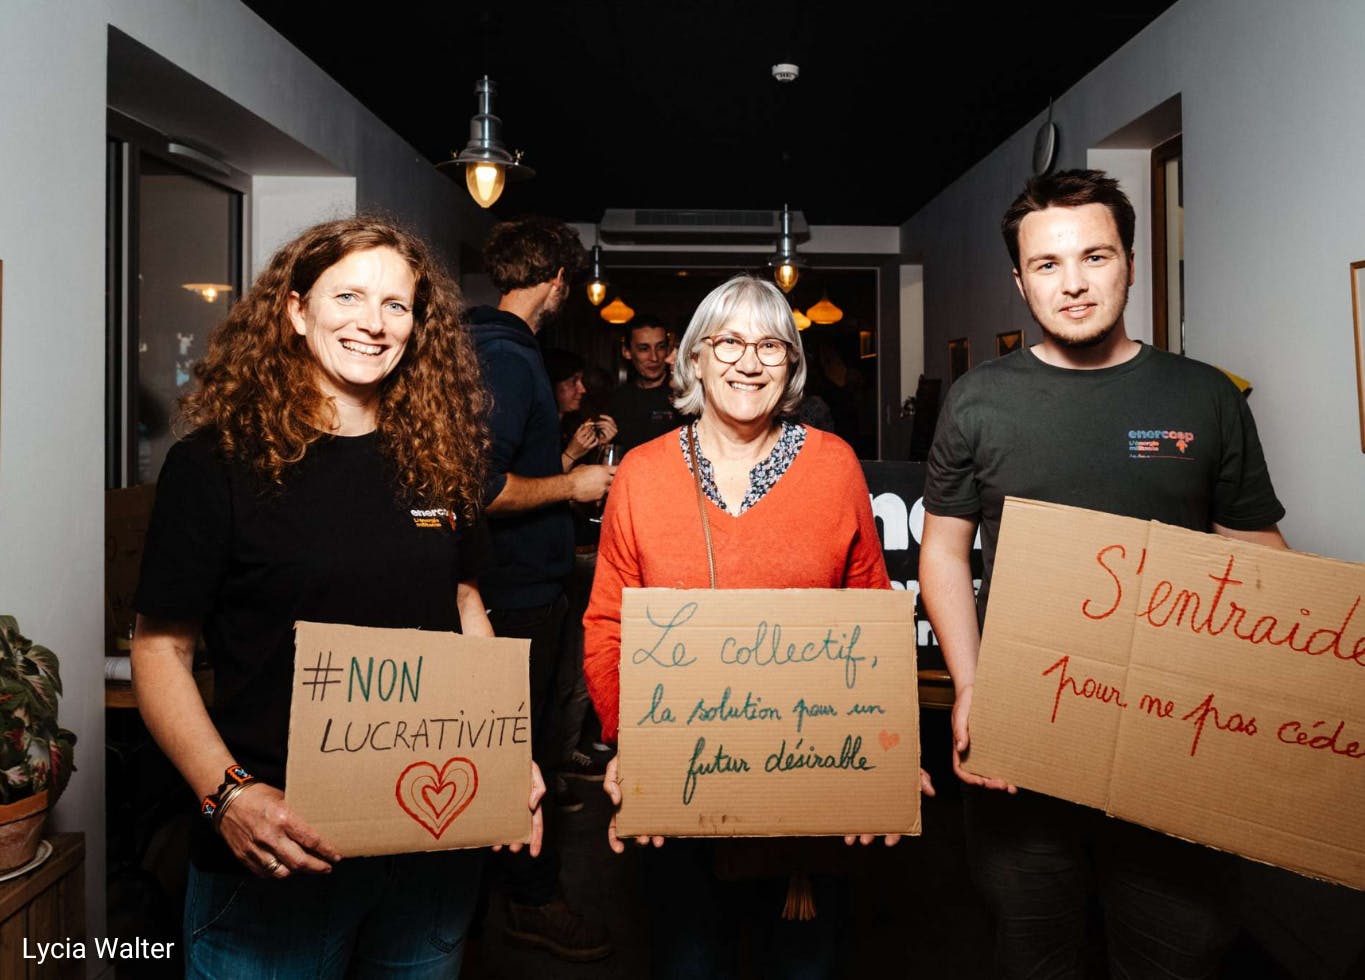 enercoop
L'énergie
militante
enercoop
L'énergie
militante
#NON
LUCRATIVITÉ
Le collectif,
la solution pour un
futur désirable
S'entraide
pour ne pas céde
Lycia Walter